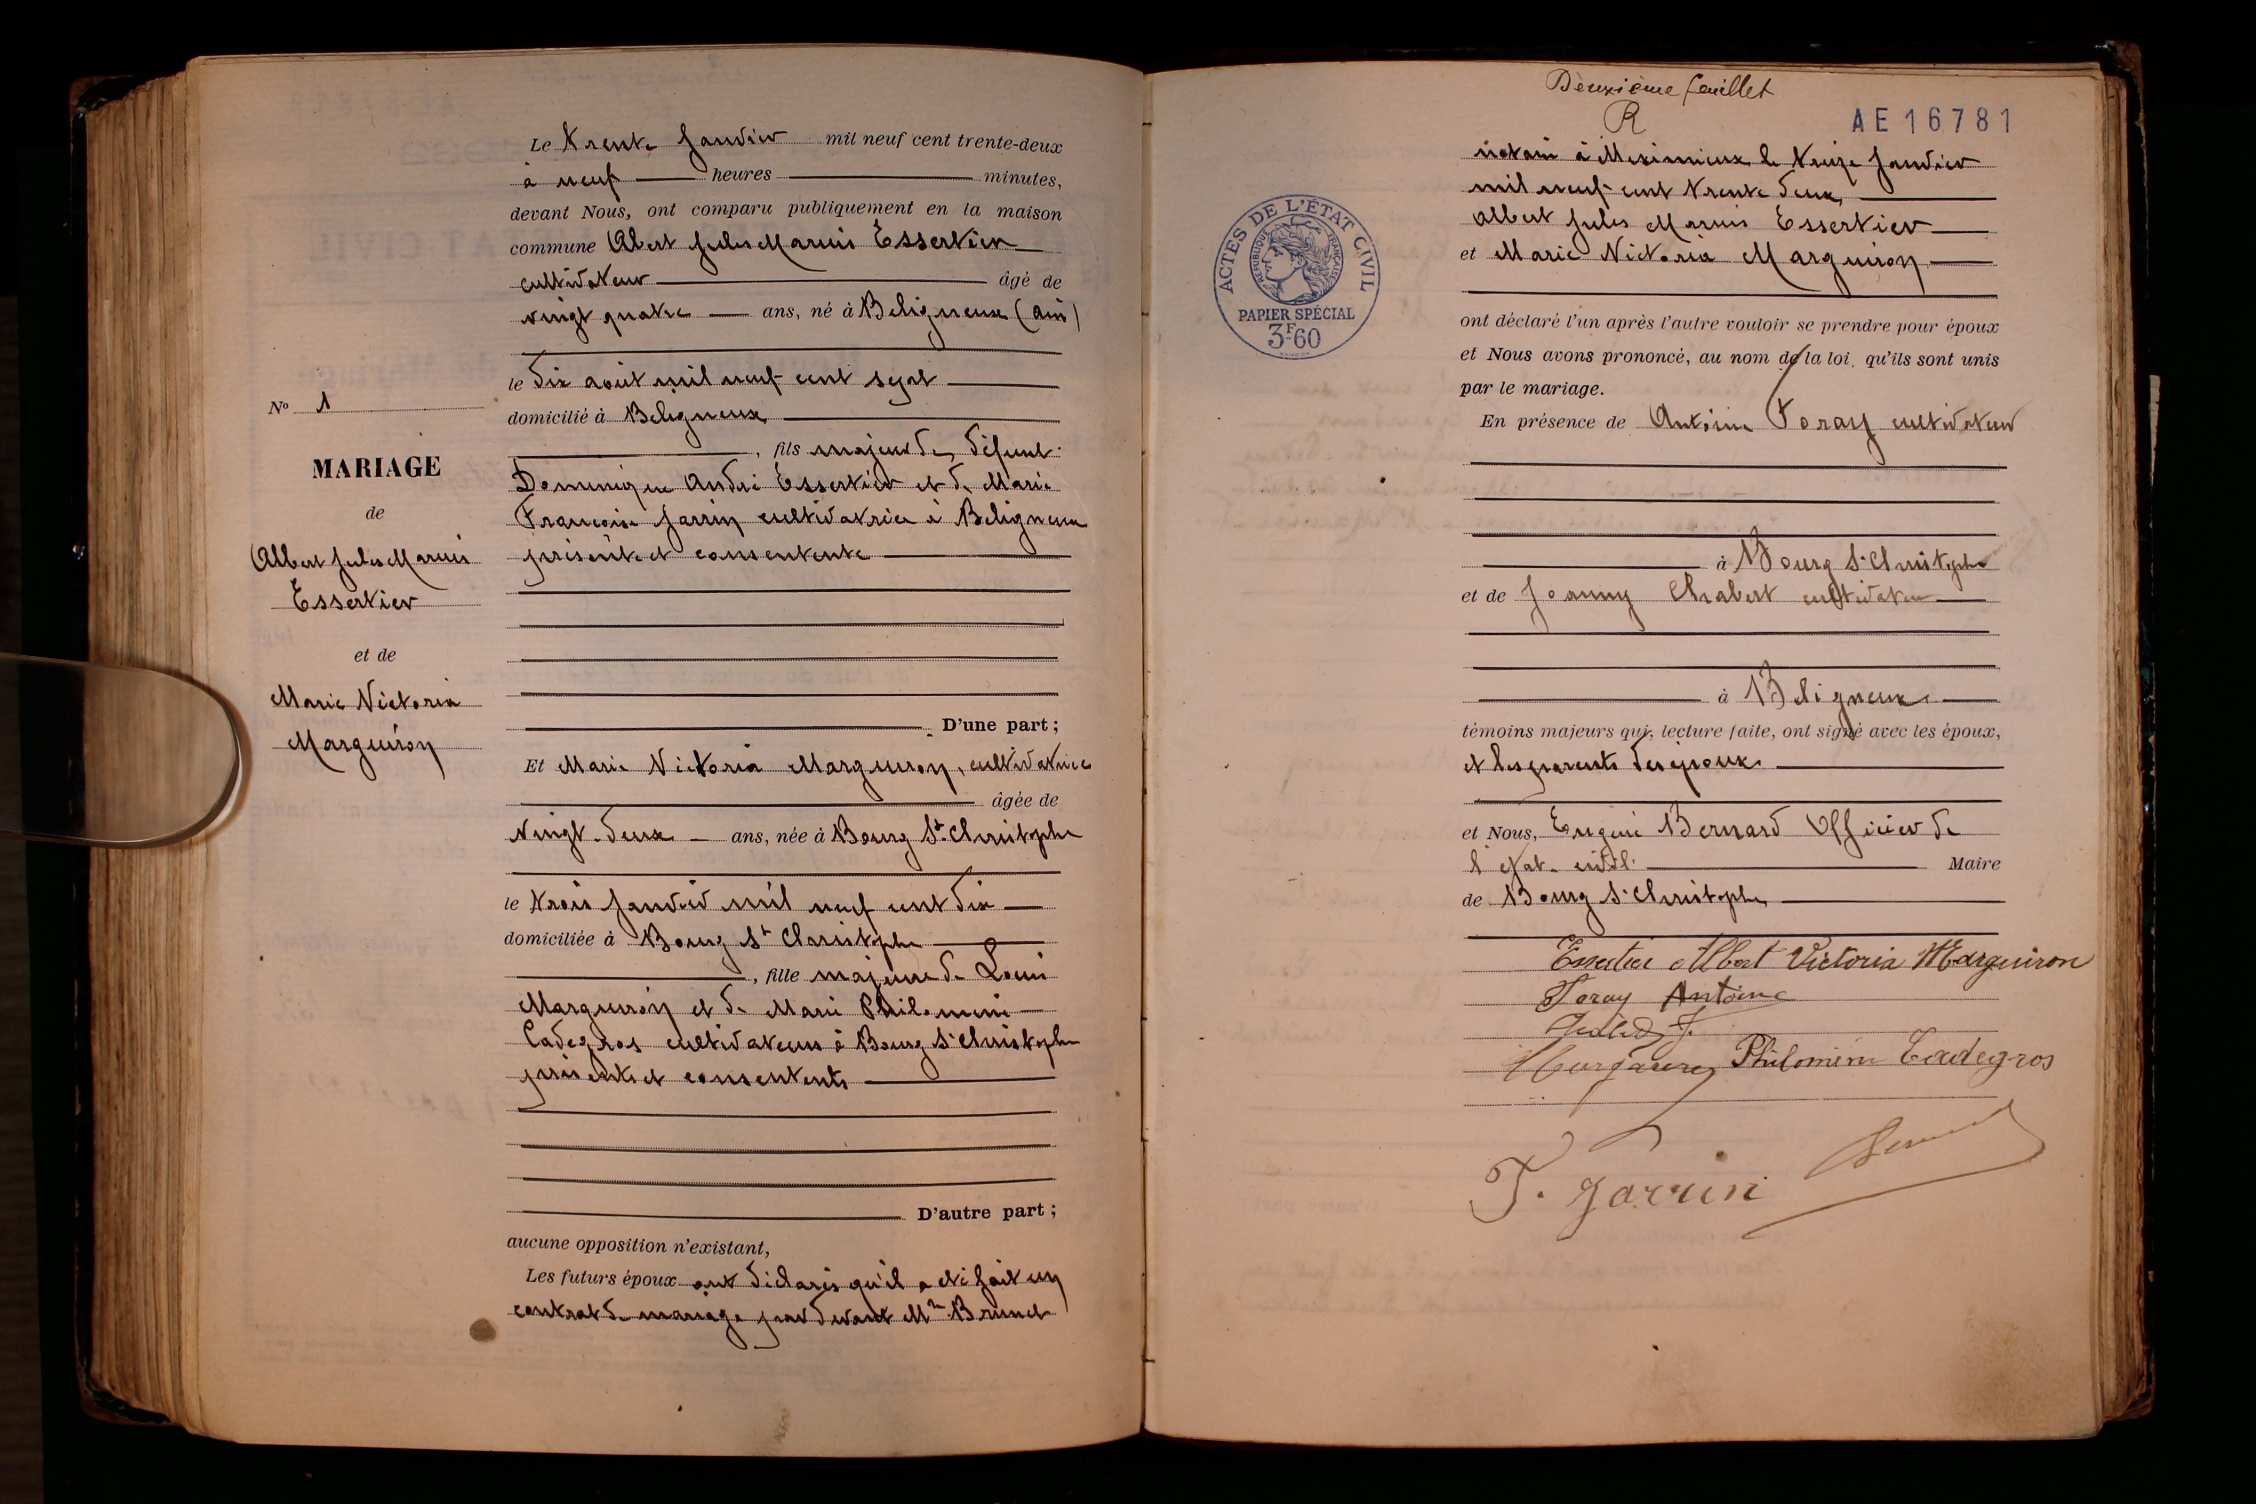 Le trente Janvier mil neuf cent trente-deux
à neuf heures minutes,
devant Nous, ont comparu publiquement en la maison
commune Albert Jules Marius Essertier
cultivateur âgé de
vingt quatre ans, né à Beligneux (ain)
le dix août mil neuf cent sept
domicilié à Beligneux
, fils majeur de défunt
Dominique André Essertier et de Marie
Françoise Jarrin cultivatrice à Beligneux
présente et consentente
D'une part ;
Et Marie Victoria Marguiron, cultivatrice
âgée de
vingt-deux ans, née à Bourg St Christophe
le trois Janvier mil neuf cent dix
domiciliée à Bourg St Christophe
, fille majeure de Louis
Marguiron et de Marie Philomène
Cadegros cultivateurs à Bourg St Christophe
présents et consentents
D'autre part ;
aucune opposition n'existant,
Les futurs époux ont déclarés qu'il a été fait un
contrat de mariage par devant Me Brunet
No 1
MARIAGE
de
Albert Jules Marius
Essertier
et de
Marie Victoria
Marguiron
Deuxième feuillet
R
AE16781
ACTES DE L'ÉTAT CIVIL
RÉPUBLIQUE FRANÇAISE
PAPIER SPÉCIAL
3F60
notaire à Meximieux le treize Janvier
mil neuf cent trente deux
Albert Jules Marius Essertier
et Marie Victoria Marguiron
ont déclaré l'un après l'autre vouloir se prendre pour époux
et Nous avons prononcé, au nom de la loi, qu'ils sont unis
par le mariage.
En présence de Antoine Foray cultivateur
à Bourg St Christophe
et de Joanny Chabert cultivateur
à Beligneux
témoins majeurs qui, lecture faite, ont signé avec les époux,
et les parents des époux
et Nous, Eugène Bernard Officier de
l'état-civil Maire
de Bourg St Christophe
Essertier Albert Victoria Marguiron
Foray Antoine
Philomène Cadegros
F. Jarrin